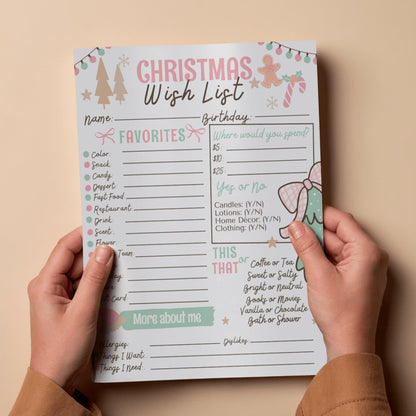 CHRISTMAS
Wish List
Name: Birthday:
FAVORITES
Color
Snack
Candy
Dessert
Fast Food
Restaurant
Drink
Scent
Flower
Team
Card
Where would you spend?
$5
$10
$25
Yes or No
Candles: (Y/N)
Lotions: (Y/N)
Home Décor: (Y/N)
Clothing: (Y/N)
THIS or THAT
Coffee or Tea
Sweet or Salty
Bright or Neutral
Books or Movies
Vanilla or Chocolate
Bath or Shower
More about me
Allergies Dislikes
Things I Want
Things I Need